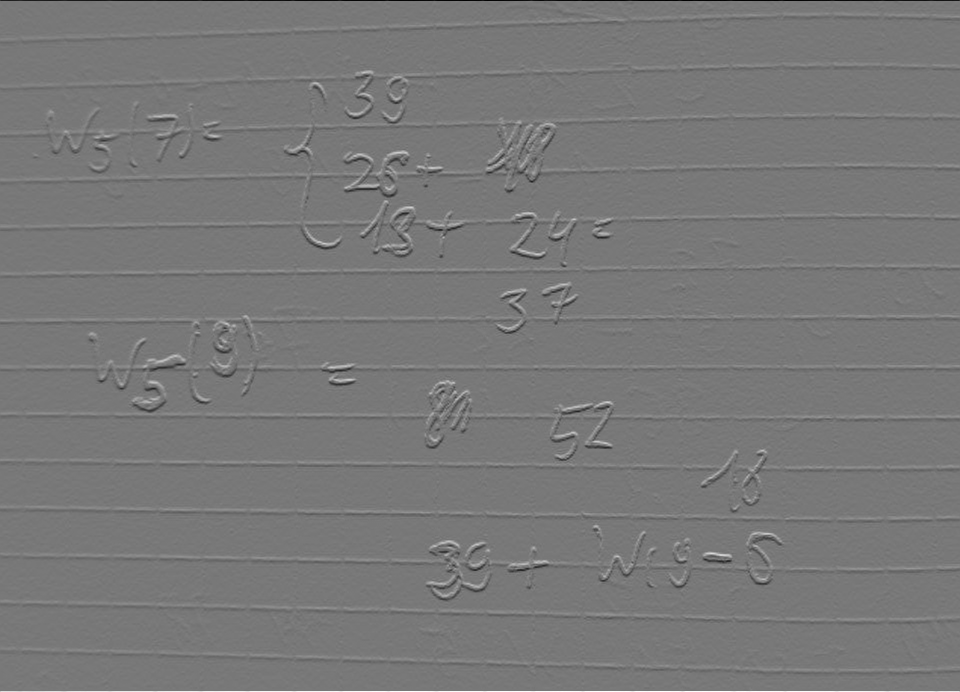 W5(7)= { 39
25+
13+ 24=
37
W5(9) =
52
18
39 + W(9-5